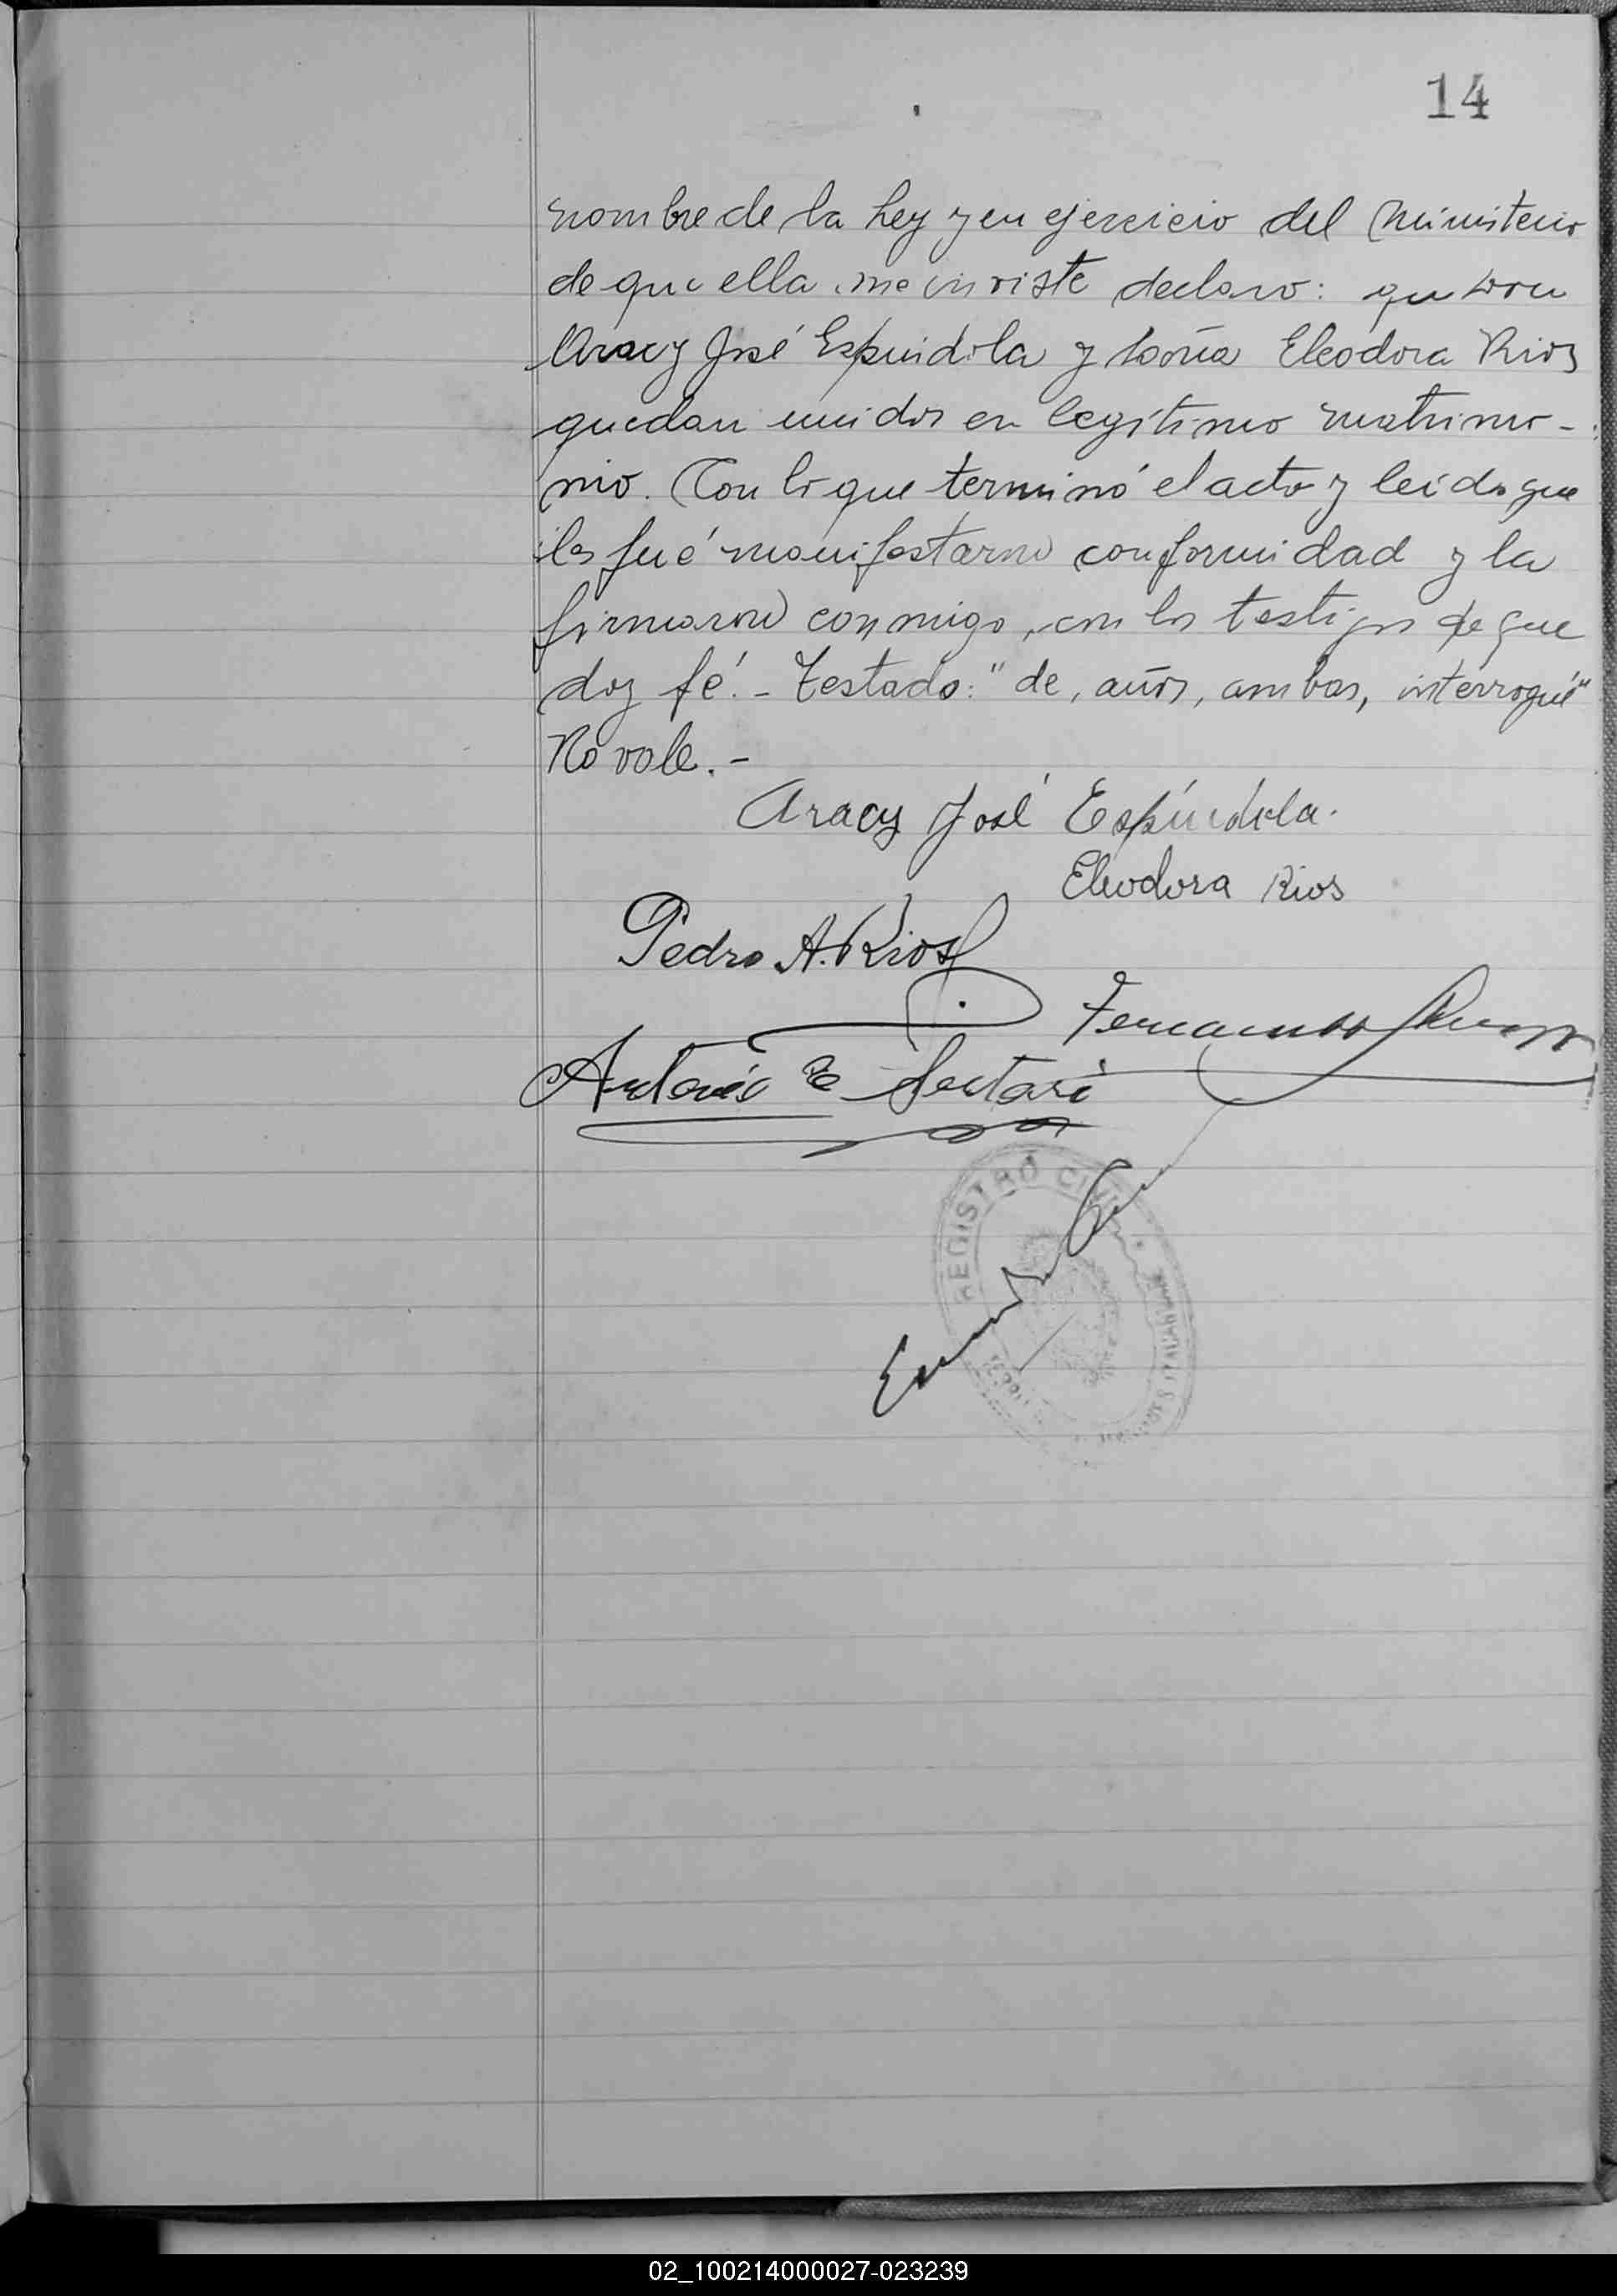 14
nombre de la Ley y en ejercicio del Ministerio
de que ella me inviste declaro: que don
Aracy José Espindola y doña Eleodora Rios
quedan unidos en legítimo matrimo-
nio. Con lo que terminó el acto y leida que
les fué manifestaron conformidad y la
firmaron conmigo, con los testigos de que
doy fé.- Testado: "de, años, ambos, interrogué"
No vale.-
Aracy José Espíndola.
Eleodora Rios
Pedro A. Rios
Fernando
Antonio
REGISTRO CIVIL
02_100214000027-023239